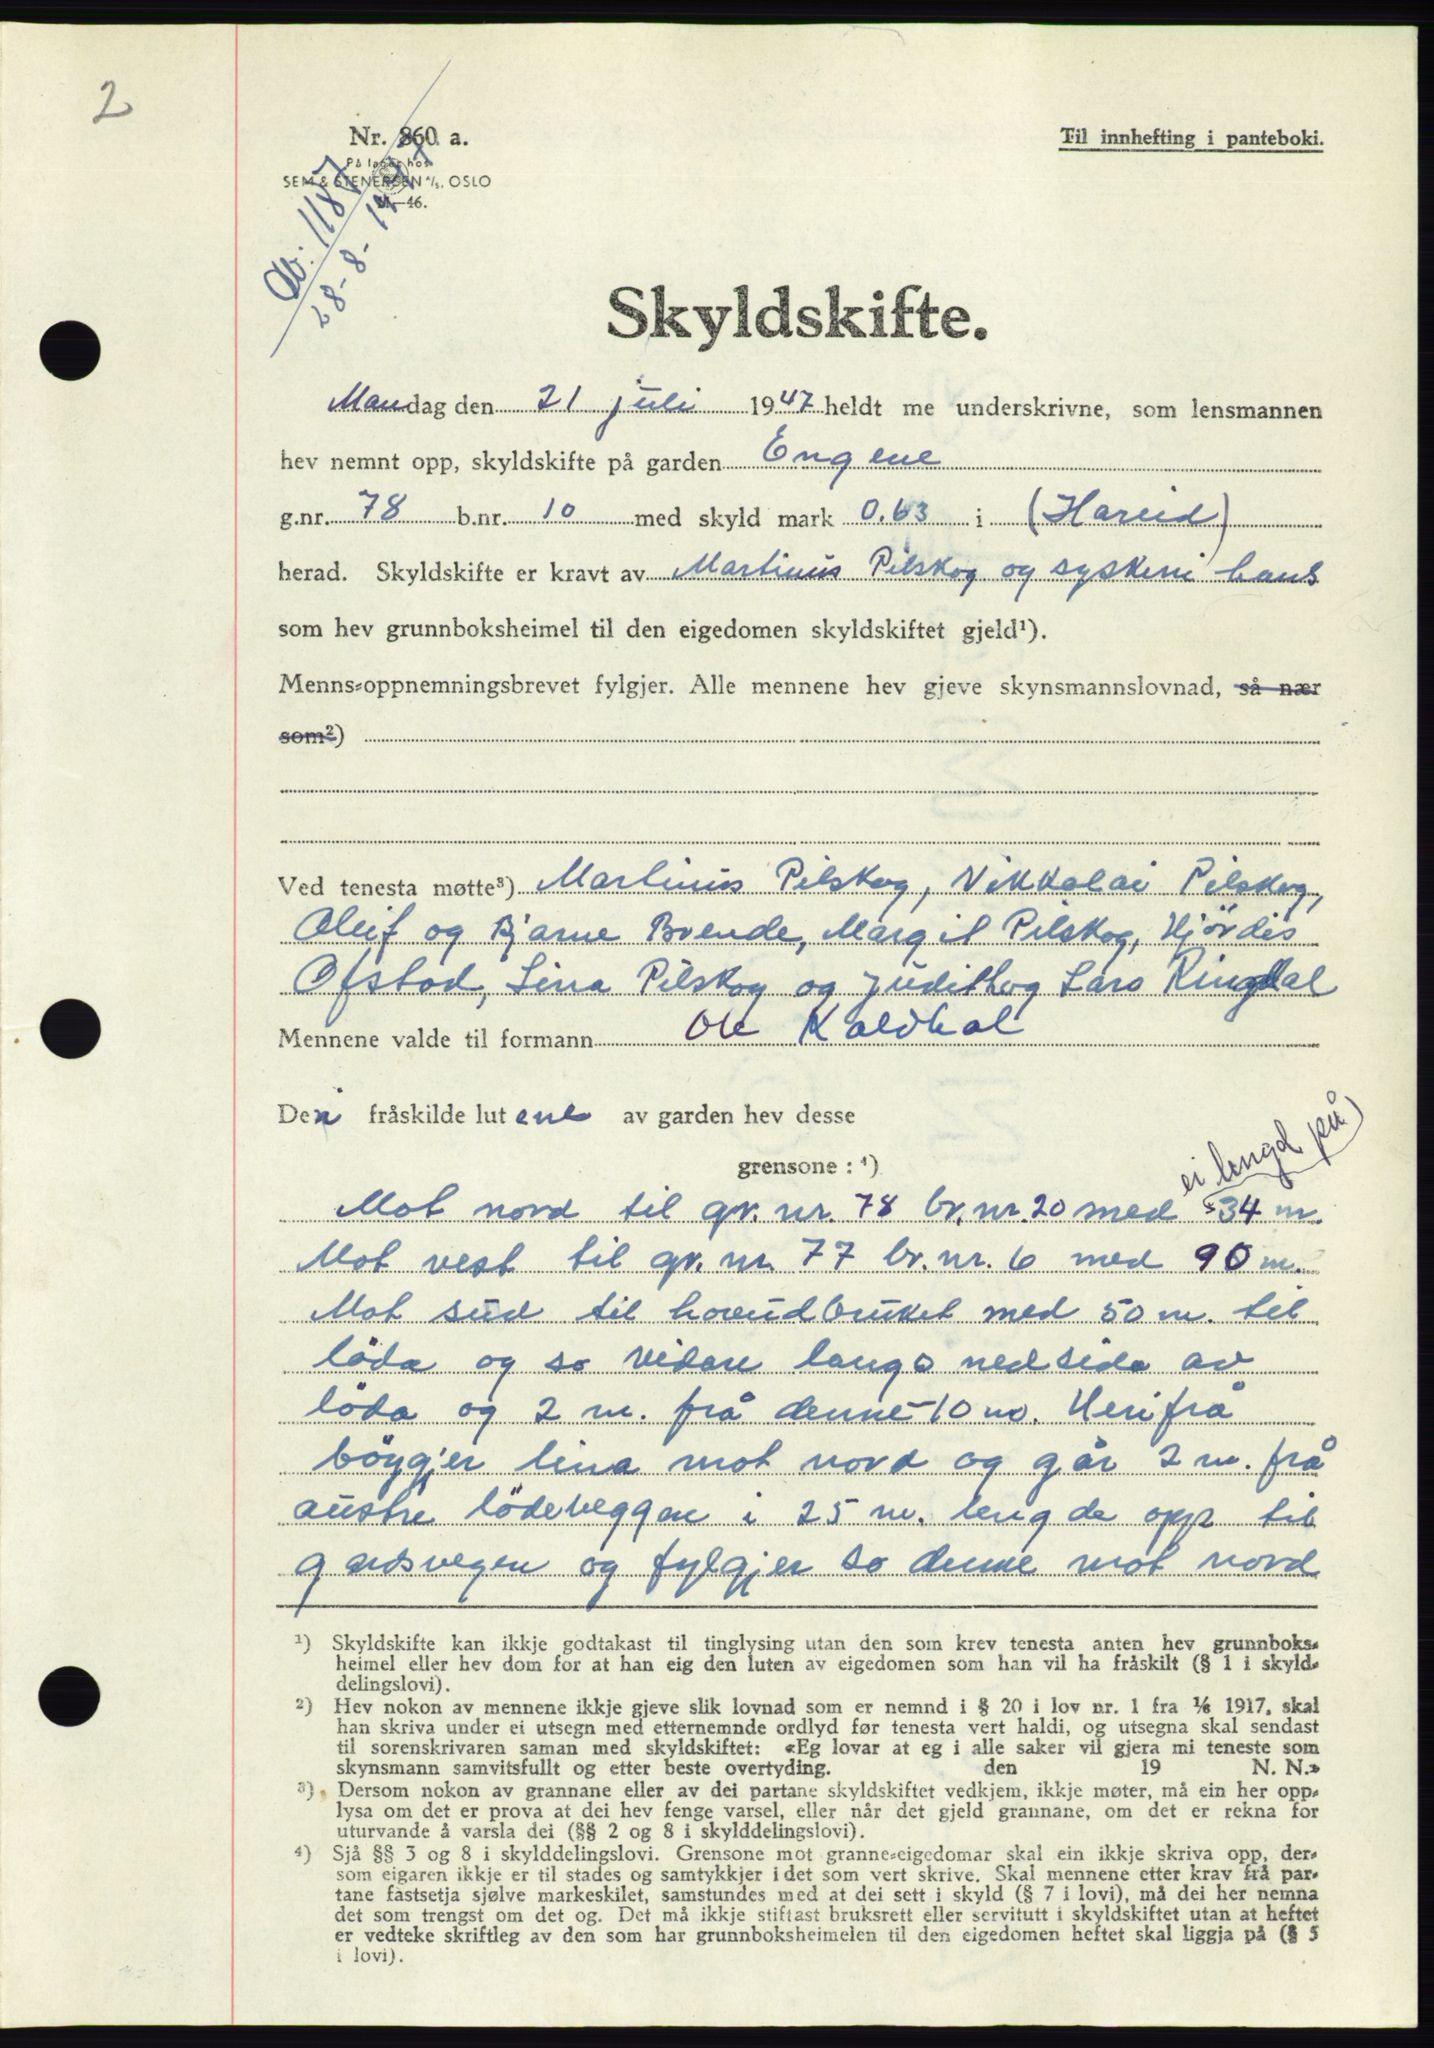 2
Nr. 860 a.
Til innhefting i panteboki.
På lager hos
SEM & STENERSEN A/S, OSLO
M—46.
Db. 1187
28-8-1947
Skyldskifte.
Mandag den 21 juli 1947 heldt me underskrivne, som lensmannen
hev nemnt opp, skyldskifte på garden Engene
g.nr. 78 b.nr. 10 med skyld mark 0.63 i (Hareid)
herad. Skyldskifte er kravt av Martinus Pilskog og syskeni hans
som hev grunnboksheimel til den eigedomen skyldskiftet gjeld¹).
Menns-oppnemningsbrevet fylgjer. Alle mennene hev gjeve skynsmannslovnad, så nær
som²)
Ved tenesta møtte³) Martinus Pilskog, Nikkolai Pilskog,
Oleif og Bjarne Brende, Margit Pilskog, Hjördis
Ofstad, Lina Pilskog og Judith og Lars Ringdal
Mennene valde til formann Ole Kaldhol
Dei fråskilde lutene av garden hev desse
grensone: ⁴)
ei lengd på
Mot nord til gr. nr. 78 br. nr. 20 med 34 m.
Mot vest til gr. nr. 77 br. nr. 6 med 90 m.
Mot sud til hovudbruket med 50 m. til
löda og so vidare langs nedsida av
löda og 2 m. frå denne 10 m. Herifrå
böygjer lina mot nord og går 2 m. frå
austre lödeveggen i 25 m. lengde opp til
gardsvegen og fylgjer so denne mot nord
¹) Skyldskifte kan ikkje godtakast til tinglysing utan den som krev tenesta anten hev grunnboks-
heimel eller hev dom for at han eig den luten av eigedomen som han vil ha fråskilt (§ 1 i skyld-
delingslovi).
²) Hev nokon av mennene ikkje gjeve slik lovnad som er nemnd i § 20 i lov nr. 1 fra ⅙ 1917, skal
han skriva under ei utsegn med etternemnde ordlyd før tenesta vert haldi, og utsegna skal sendast
til sorenskrivaren saman med skyldskiftet: «Eg lovar at eg i alle saker vil gjera mi teneste som
skynsmann samvitsfullt og etter beste overtyding. den 19 N. N.»
³) Dersom nokon av grannane eller av dei partane skyldskiftet vedkjem, ikkje møter, må ein her opp-
lysa om det er prova at dei hev fenge varsel, eller når det gjeld grannane, om det er rekna for
uturvande å varsla dei (§§ 2 og 8 i skylddelingslovi).
⁴) Sjå §§ 3 og 8 i skylddelingslovi. Grensone mot granne-eigedomar skal ein ikkje skriva opp, der-
som eigaren ikkje er til stades og samtykkjer i det som vert skrive. Skal mennene etter krav frå par-
tane fastsetja sjølve markeskilet, samstundes med at dei sett i skyld (§ 7 i lovi), må dei her nemna
det som trengst om det og. Det må ikkje stiftast bruksrett eller servitutt i skyldskiftet utan at heftet
er vedteke skriftleg av den som har grunnboksheimelen til den eigedomen heftet skal liggja på (§ 5
i lovi).